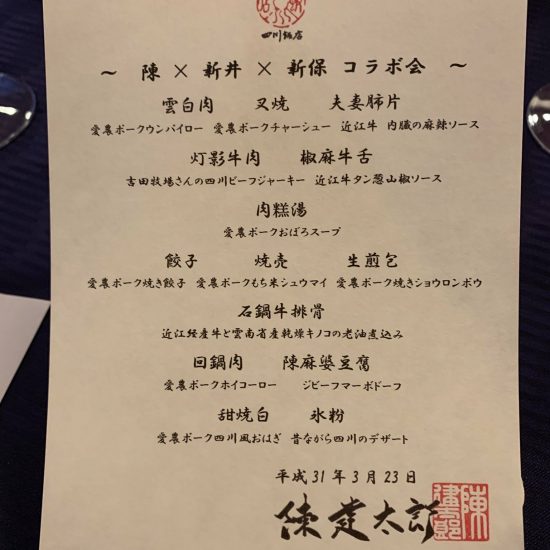 四川飯店
～ 陳 × 新井 × 新保 コラボ会 ～
雲白肉 叉焼 夫妻肺片
愛農ポークウンパイロー 愛農ポークチャーシュー 近江牛 内臓の麻辣ソース
灯影牛肉 椒麻牛舌
吉田牧場さんの四川ビーフジャーキー 近江牛タン葱山椒ソース
肉糕湯
愛農ポークおぼろスープ
餃子 焼売 生煎包
愛農ポーク焼き餃子 愛農ポークもち米シュウマイ 愛農ポーク焼きショウロンポウ
石鍋牛排骨
近江経産牛と雲南省産乾燥キノコの老油煮込み
回鍋肉 陳麻婆豆腐
愛農ポークホイコーロー ジビーフマーボドーフ
甜焼白 氷粉
愛農ポーク四川風おはぎ 昔ながら四川のデザート
平成31年3月23日
陳建太郎
陳建太郎